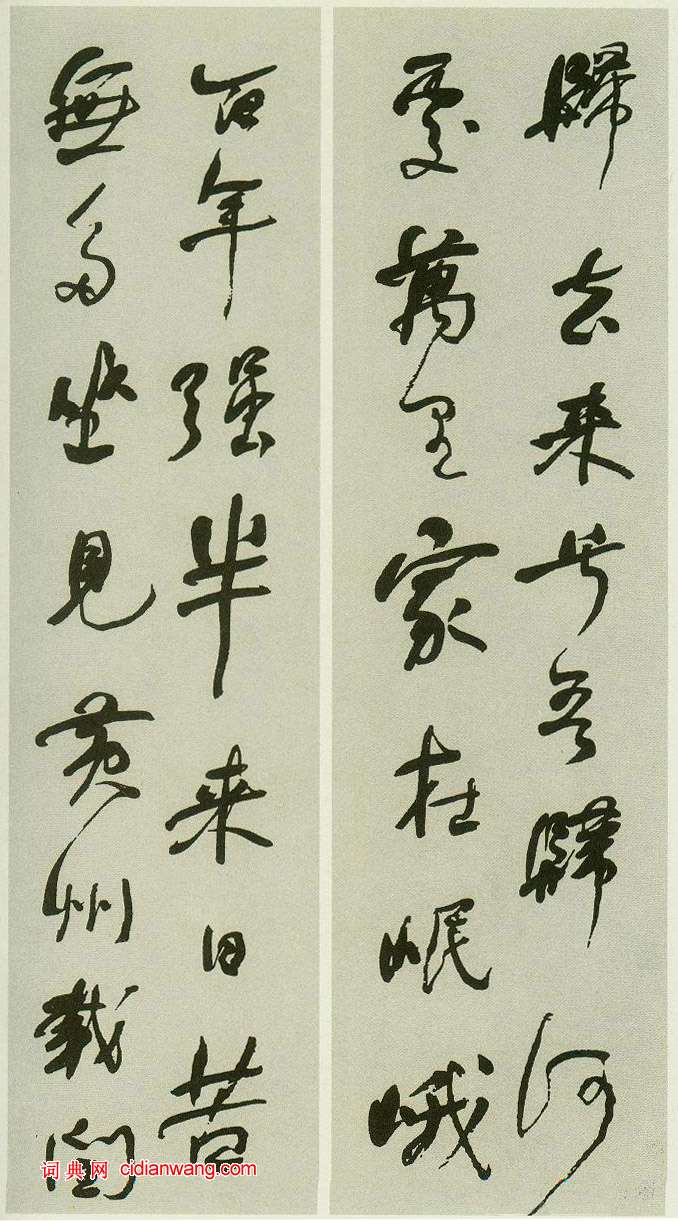 歸去来兮吾歸何
處萬里家在岷峨
百年强半来日苦
無多坐見黄州載閏
词典网 cidianwang.com